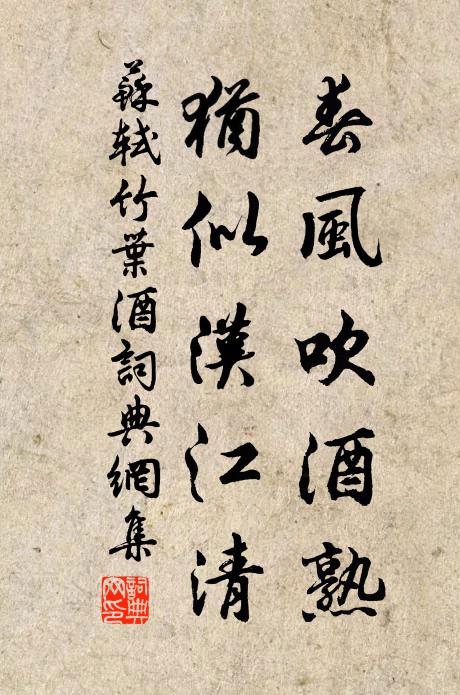 春風吹酒熟
猶似漢江清
蘇軾竹葉酒詞典網集
詞典
网印